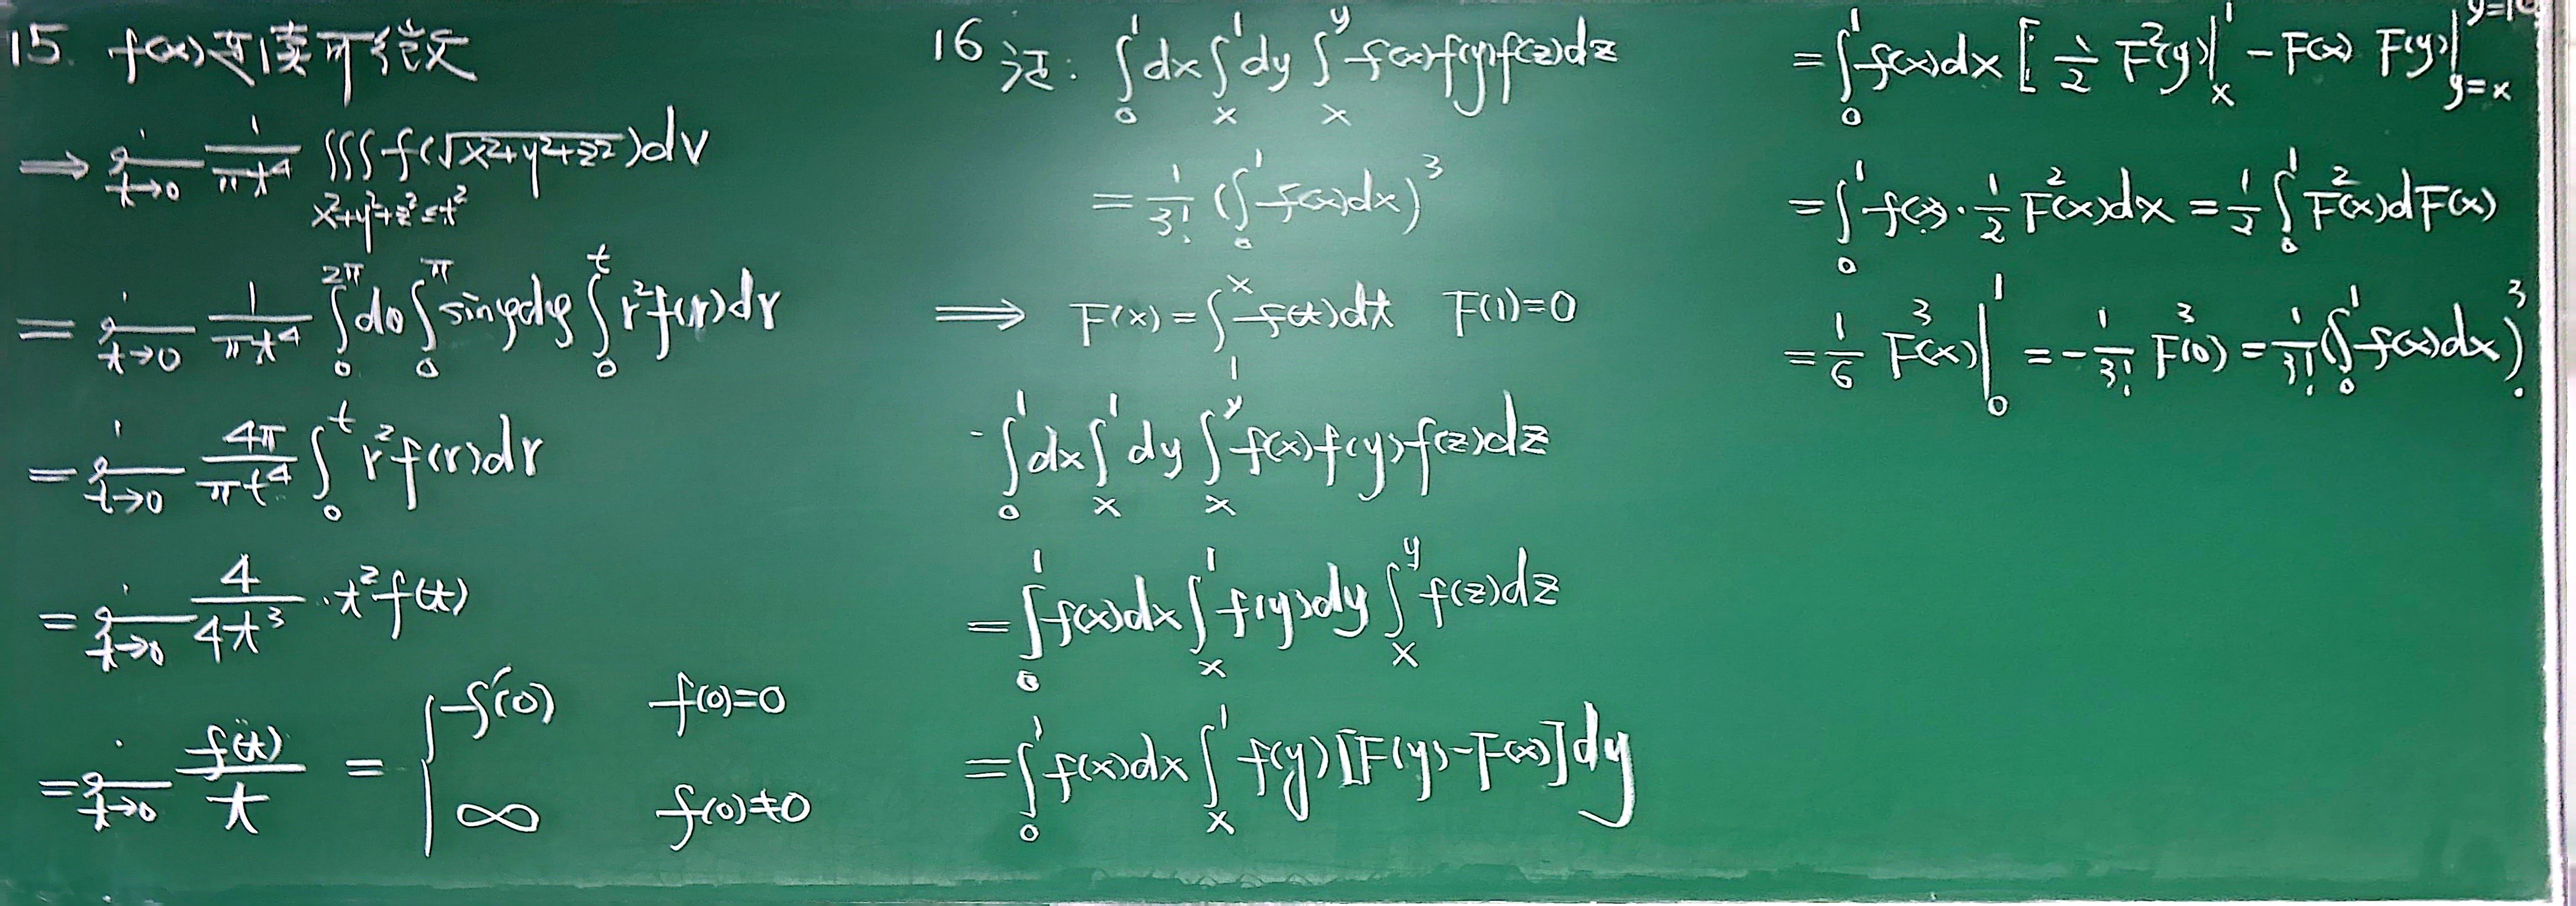 15. f(x)连续可微
⇒ lim_{t→0} \frac{1}{πt^4} ∭_{x^2+y^2+z^2≤t^2} f(√(x^2+y^2+z^2)) dv
= lim_{t→0} \frac{1}{πt^4} ∫_0^{2π} dθ ∫_0^π sinφdφ ∫_0^t r^2 f(r) dr
= lim_{t→0} \frac{4π}{πt^4} ∫_0^t r^2 f(r) dr
= lim_{t→0} \frac{4}{4t^3} · t^2 f(t)
= lim_{t→0} \frac{f(t)}{t} = { f'(0)  f(0)=0
∞  f(0)≠0
16 证: ∫_0^1 dx ∫_x^1 dy ∫_x^y f(x)f(y)f(z)dz
= \frac{1}{3!} (∫_0^1 f(x)dx)^3
⇒ F(x) = ∫_1^x f(t)dt  F(1)=0
∫_0^1 dx ∫_x^1 dy ∫_x^y f(x)f(y)f(z)dz
= ∫_0^1 f(x)dx ∫_x^1 f(y)dy ∫_x^y f(z)dz
= ∫_0^1 f(x)dx ∫_x^1 f(y)[F(y)-F(x)]dy
= ∫_0^1 f(x)dx [\frac{1}{2} F^2(y)|_x^1 - F(x) F(y)|_{y=x}^{y=1}
= ∫_0^1 f(x)·\frac{1}{2} F^2(x)dx = \frac{1}{2} ∫_0^1 F^2(x)dF(x)
= \frac{1}{6} F^3(x)|_0^1 = -\frac{1}{3!} F^3(0) = \frac{1}{3!} (∫_0^1 f(x)dx)^3.